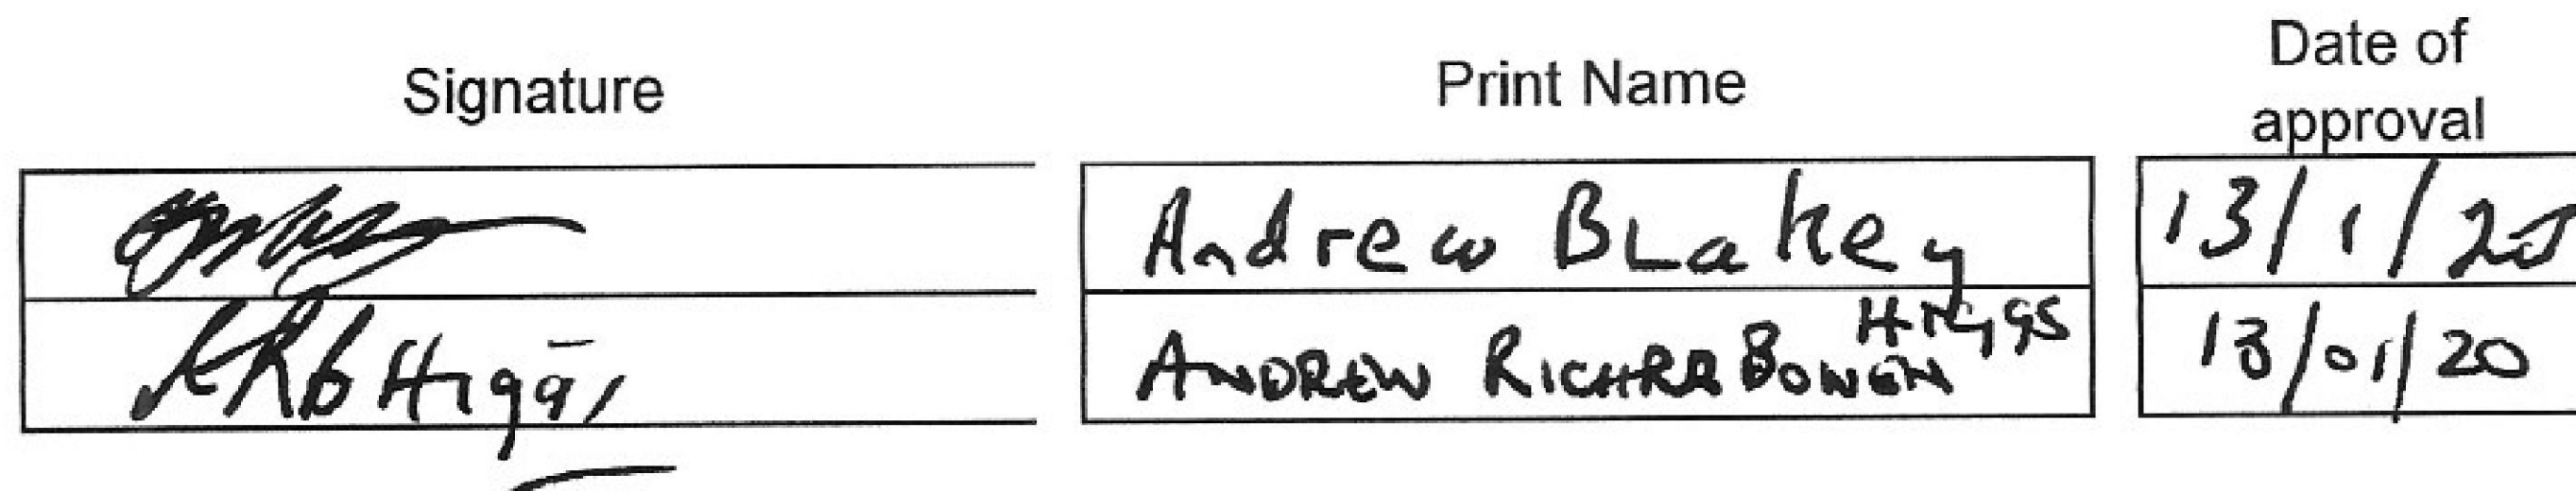 Signature Print Name Date of
approval
Andrew Blakey 13/1/20
ARB Higgs ANDREW RICHARD BOWEN HIGGS 13/01/20